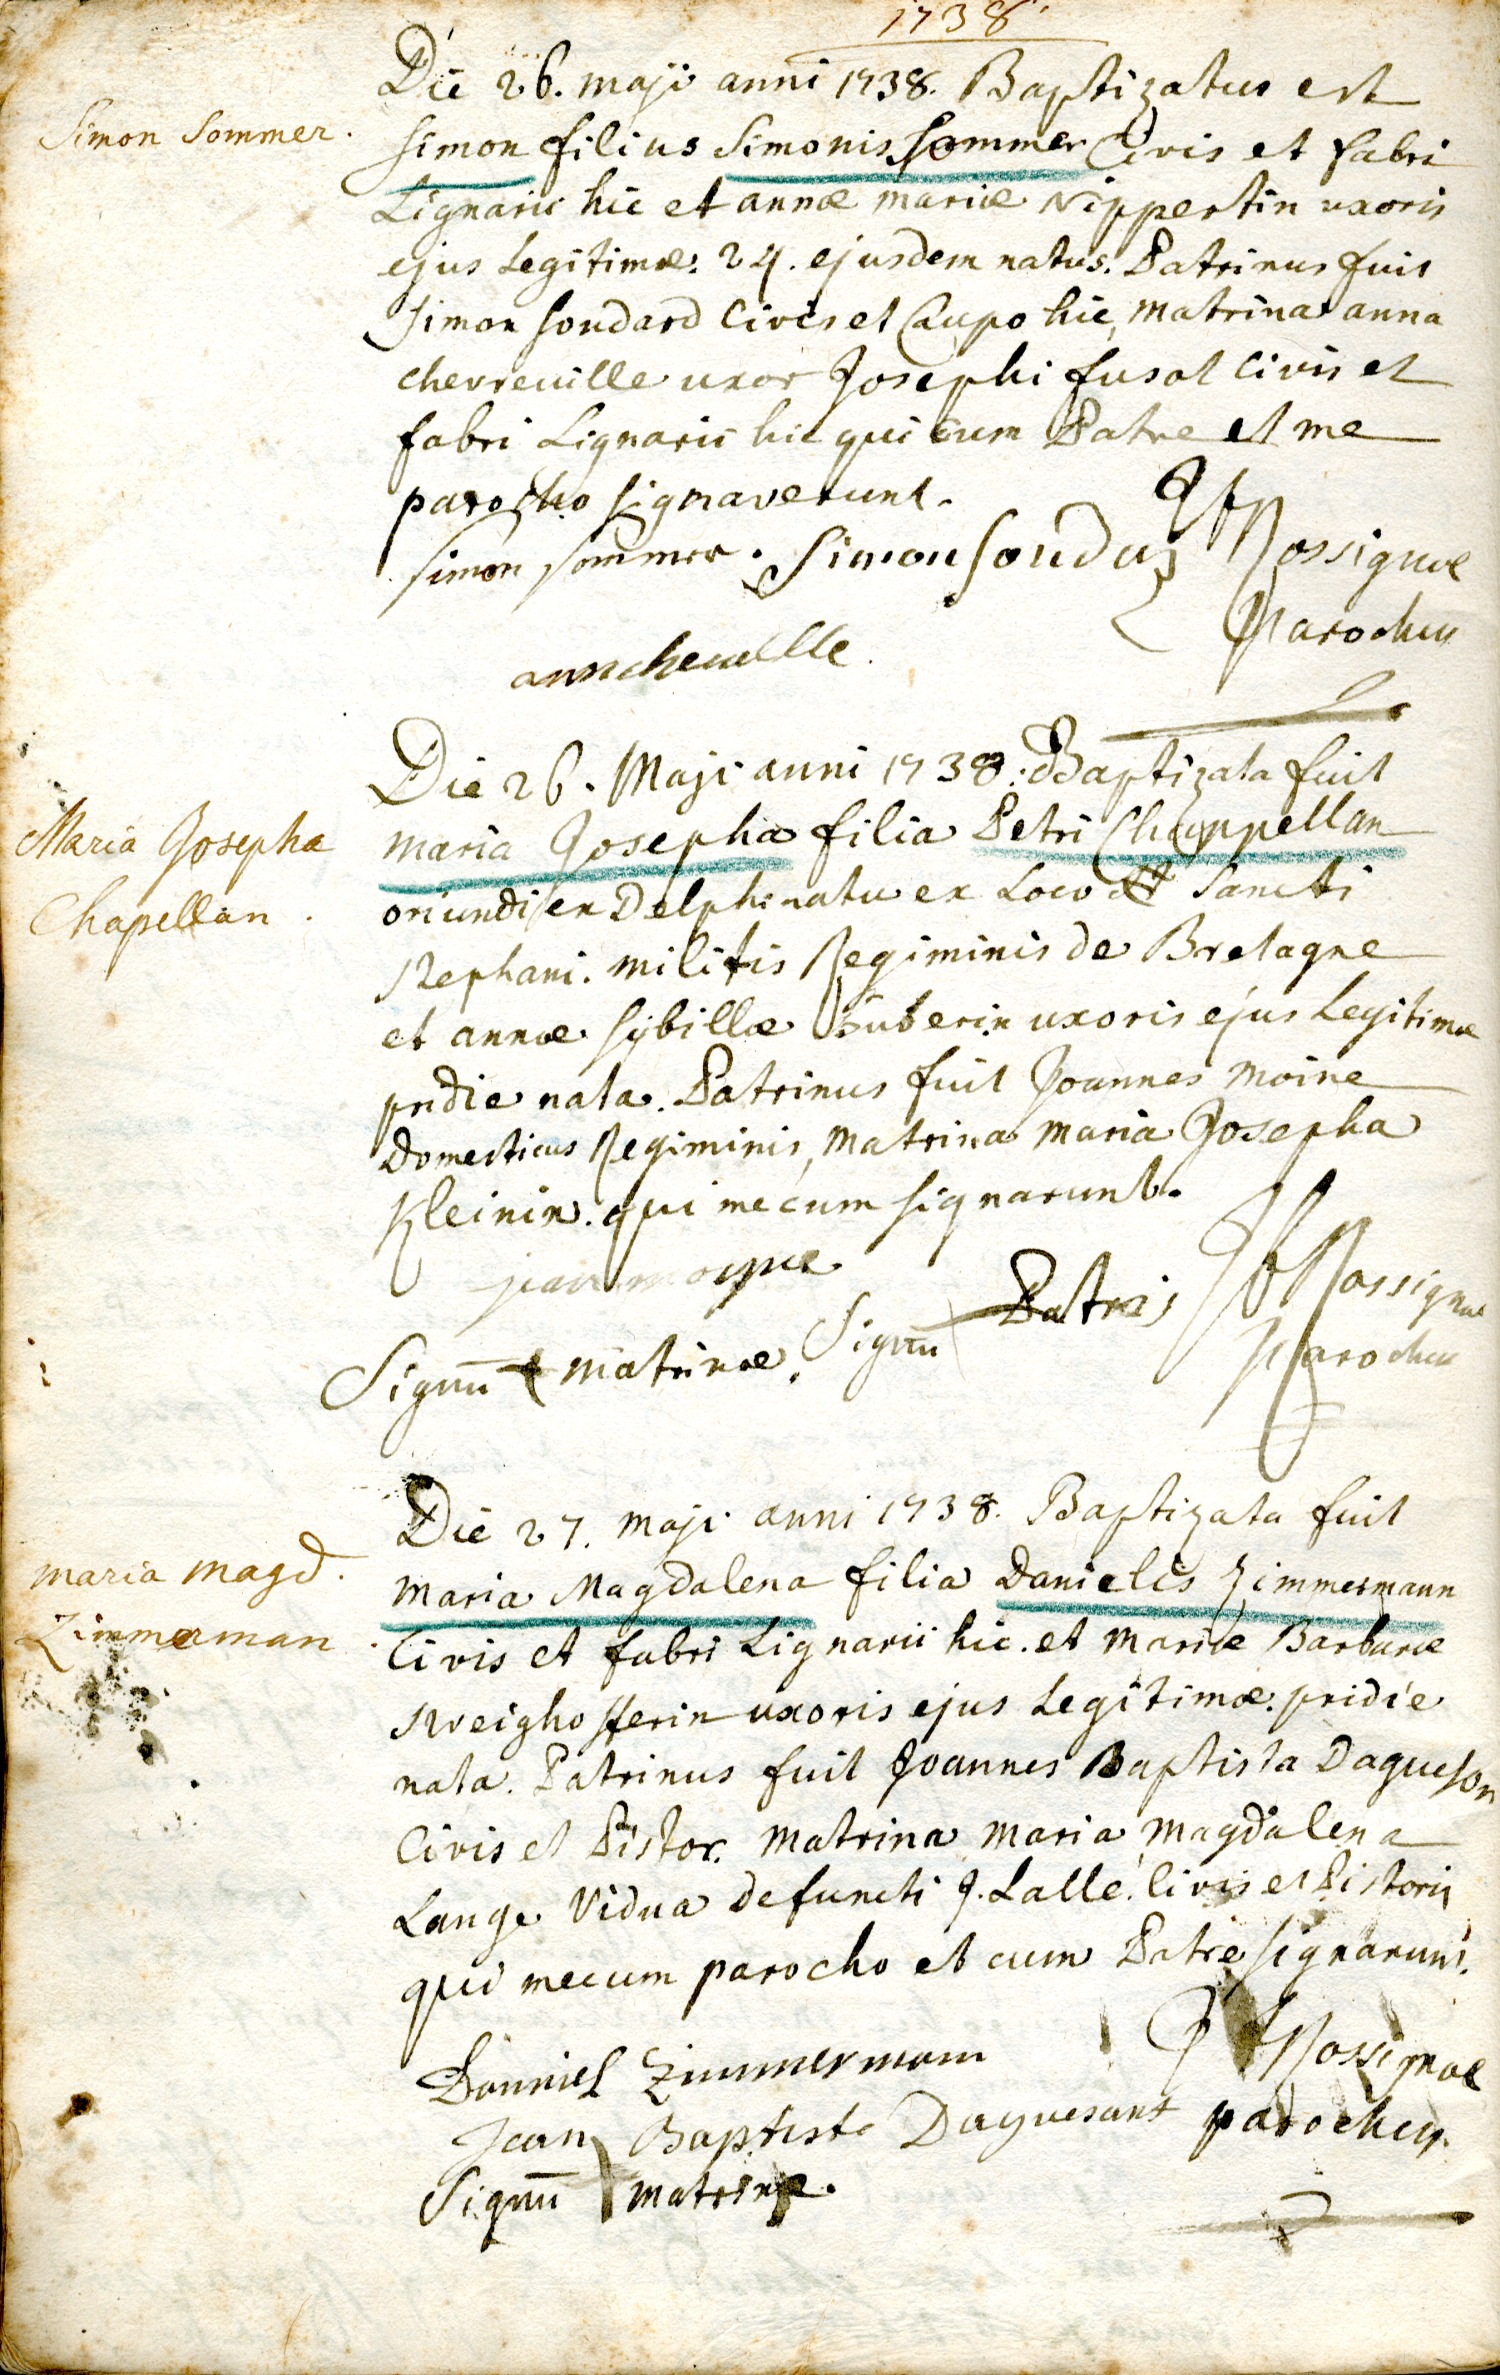 1738
Die 26. maji anni 1738. Baptizatus est
Simon Sommer.
simon filius Simonis sommer Civis et fabri
Lignarii hic et annæ mariæ Nippertin uxoris
ejus Legitimæ. 24. ejusdem natus. Patrinus fuit
simon soudard Civis et Caupo hic, matrina anna
chevreuille uxor Josephi fusot Civis et
fabri Lignarii hic qui cum Patre et me
parocho signaverunt.
simon sommer. Simon Soudaz Rossignol
Parochus
Die 26. Maji anni 1738. Baptizata fuit
Maria Josepha
Chapellan.
maria Josepha filia Petri Chappellan
oriundi ex Delphinatu ex Loco Sancti
Stephani. militis Regiminis de Bretagne
et annæ sybillæ uxoris ejus Legitimæ
pridie nata. Patrinus fuit Joannes moine
Domesticus Regiminis, matrina maria Josepha
Kleinin. qui mecum signarunt.
Signū matrinæ. Signū Patris Rossignol
Parochus
Die 27. maji anni 1738. Baptizata fuit
maria magd.
Zimmerman.
maria Magdalena filia Danielis Zimmermann
Civis et fabri Lignarii hic. et mariæ Barbaræ
Sweighofferin uxoris ejus Legitimæ. pridie
nata. Patrinus fuit Joannes Baptista Dagueson
Civis et Pistor. matrina maria magdalena
Lange Vidua defuncti J. Lallé. Civis et Pistoris
qui mecum parocho et cum Patre signarunt.
Danniel Zimmermann Rossignol
Jean Baptiste Daguesant parochus.
Signū matrinæ.